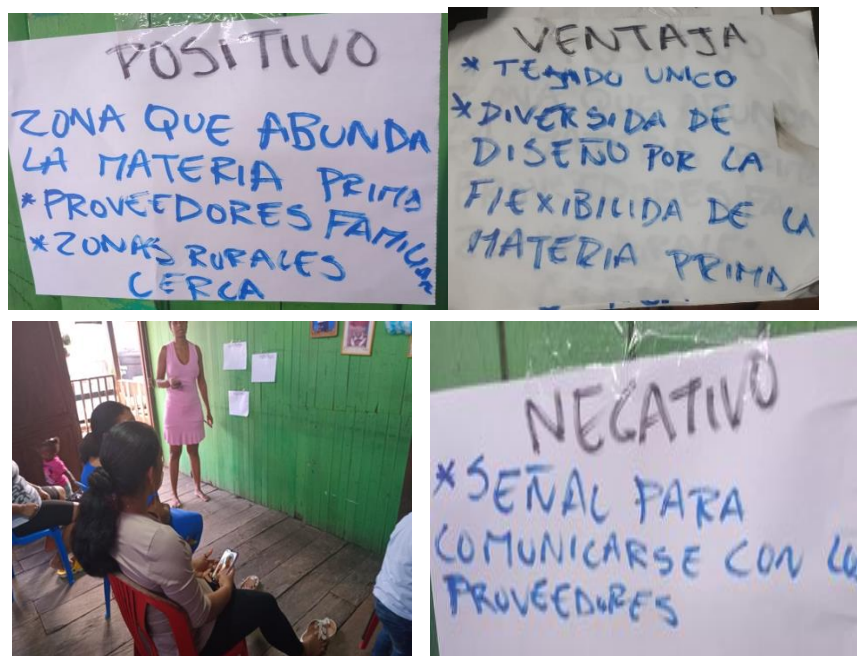 POSITIVO
ZONA QUE ABUNDA
LA MATERIA PRIMA
* PROVEEDORES FAMILIAR
* ZONAS RURALES
CERCA
VENTAJA
* TEJADO UNICO
* DIVERSIDA DE
DISEÑO POR LA
FLEXIBILIDA DE LA
MATERIA PRIMA
NEGATIVO
* SEÑAL PARA
COMUNICARSE CON
PROVEEDORES